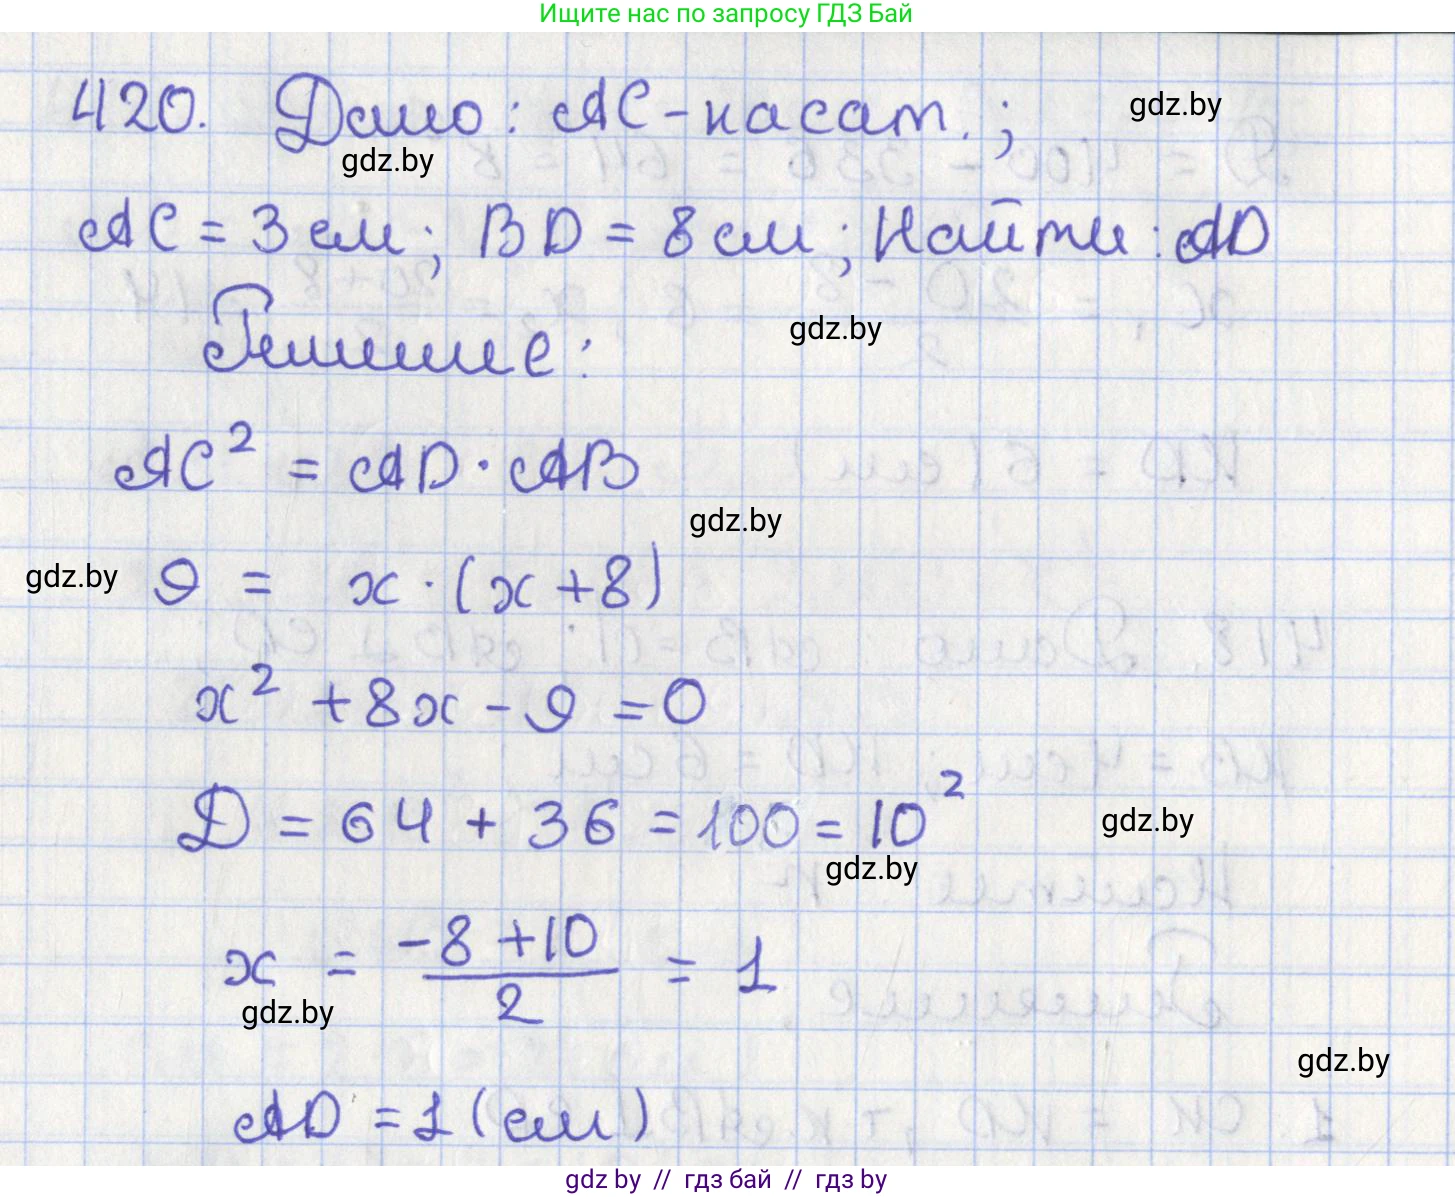 Ищите нас по запросу ГДЗ Бай
420. Дано: AC-касат.;
gdz.by
gdz.by
AC = 3 см; BD = 8 см; Найти: AD
gdz.by
Решение:
AC² = AD · AB
gdz.by
gdz.by
9 = x · (x + 8)
x² + 8x - 9 = 0
Д = 64 + 36 = 100 = 10²
gdz.by
gdz.by
x = (-8 + 10)/2 = 1
gdz.by
gdz.by
AD = 1 (см)
gdz.by // гдз бай // гдз.by